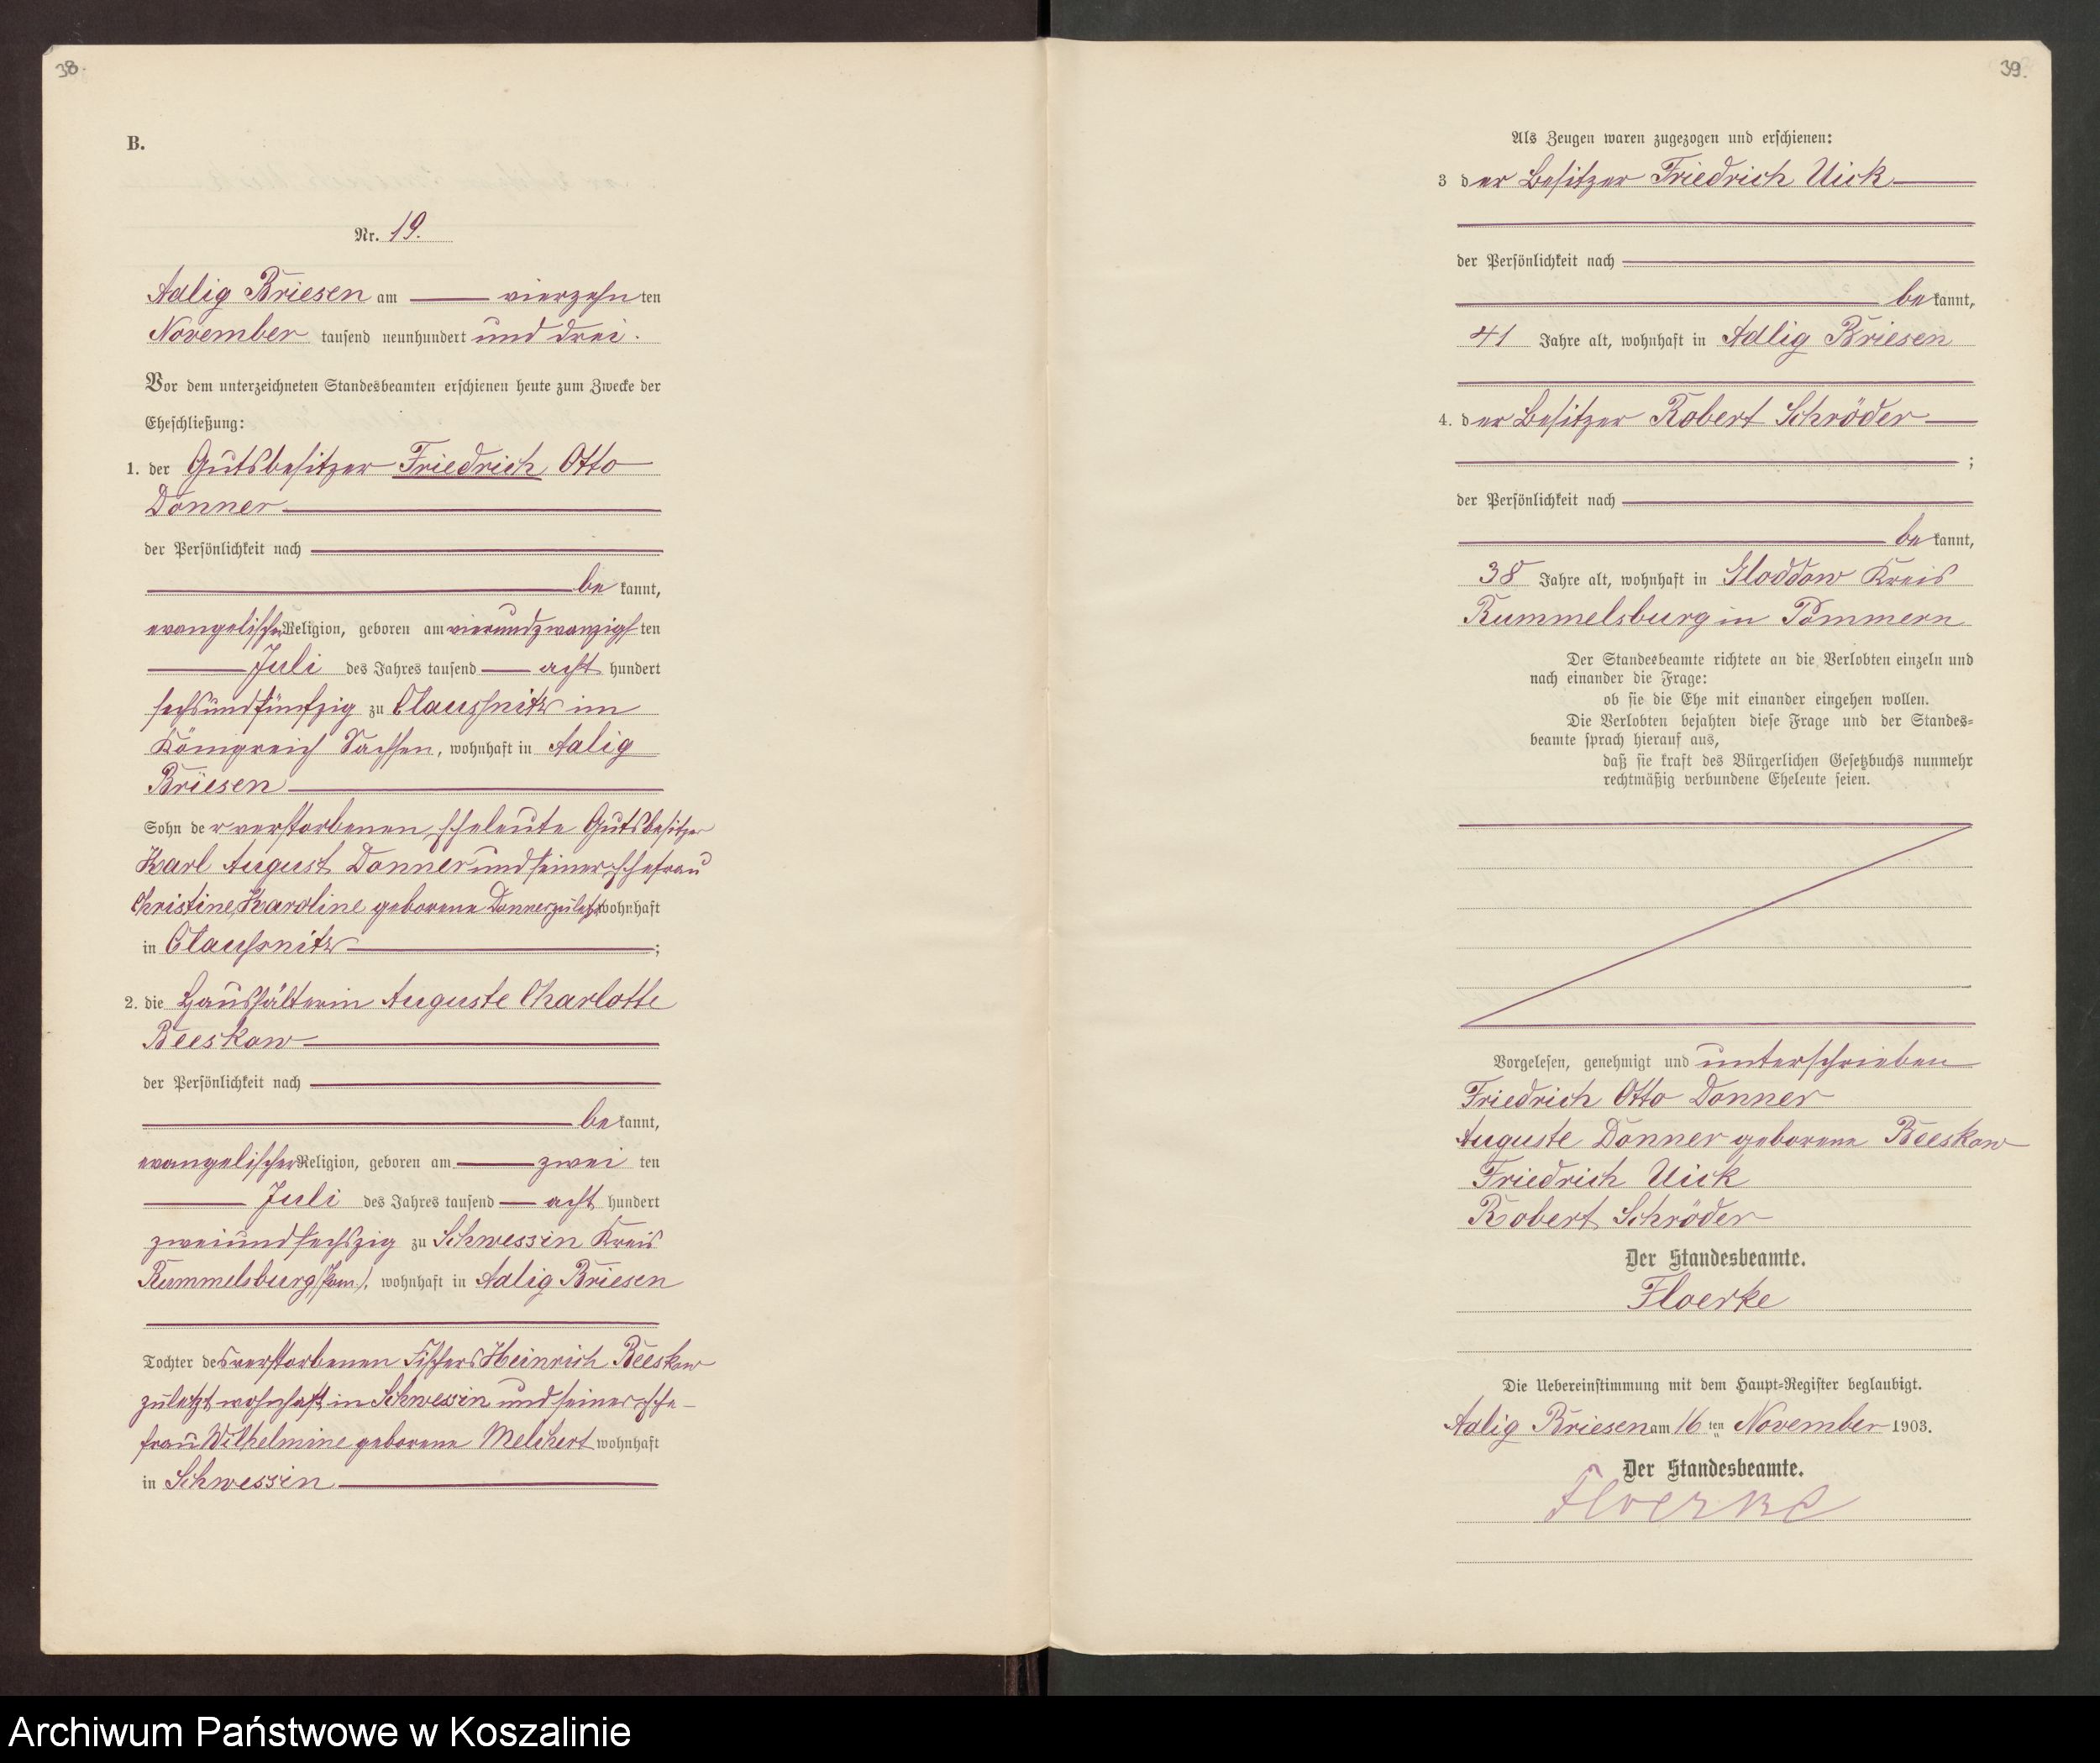 38.
B.
Nr. 19.
Adlig Briesen am vierzehnten
November tausend neunhundert und drei.
Vor dem unterzeichneten Standesbeamten erschienen heute zum Zwecke der
Eheschließung:
1. der Gutsbesitzer Friedrich Otto
Donner
der Persönlichkeit nach
bekannt,
evangelischer Religion, geboren am vierundzwanzigsten
Juli des Jahres tausend acht hundert
sechsundfünfzig zu Claussnitz im
Königreich Sachsen, wohnhaft in Adlig
Briesen
Sohn der verstorbenen Eheleute Gutsbesitzer
Karl August Donner und seiner Ehefrau
Christine Karoline geborene Donner zuletzt wohnhaft
in Claussnitz ;
2. die Haushälterin Auguste Charlotte
Beeskow
der Persönlichkeit nach
bekannt,
evangelischer Religion, geboren am zweiten
Juli des Jahres tausend acht hundert
zweiundsechszig zu Schwessin Kreis
Rummelsburg (Pom.), wohnhaft in Adlig Briesen
Tochter des verstorbenen Fischers Heinrich Beeskow
zuletzt wohnhaft in Schwessin und seiner Ehe-
frau Wilhelmine geborene Melchert wohnhaft
in Schwessin
39.
Als Zeugen waren zugezogen und erschienen:
3 der Besitzer Friedrich Uick
der Persönlichkeit nach
bekannt,
41 Jahre alt, wohnhaft in Adlig Briesen
4. der Besitzer Robert Schröder
;
der Persönlichkeit nach
bekannt,
38 Jahre alt, wohnhaft in Gloddow Kreis
Rummelsburg in Pommern
Der Standesbeamte richtete an die Verlobten einzeln und
nach einander die Frage:
ob sie die Ehe mit einander eingehen wollen.
Die Verlobten bejahten diese Frage und der Standes-
beamte sprach hierauf aus,
daß sie kraft des Bürgerlichen Gesetzbuchs nunmehr
rechtmäßig verbundene Eheleute seien.
Vorgelesen, genehmigt und unterschrieben
Friedrich Otto Donner
Auguste Donner geborene Beeskow
Friedrich Uick
Robert Schröder
Der Standesbeamte.
Floerke
Die Uebereinstimmung mit dem Haupt-Register beglaubigt.
Adlig Briesen am 16 ten November 1903.
Der Standesbeamte.
Floerke
Archiwum Państwowe w Koszalinie